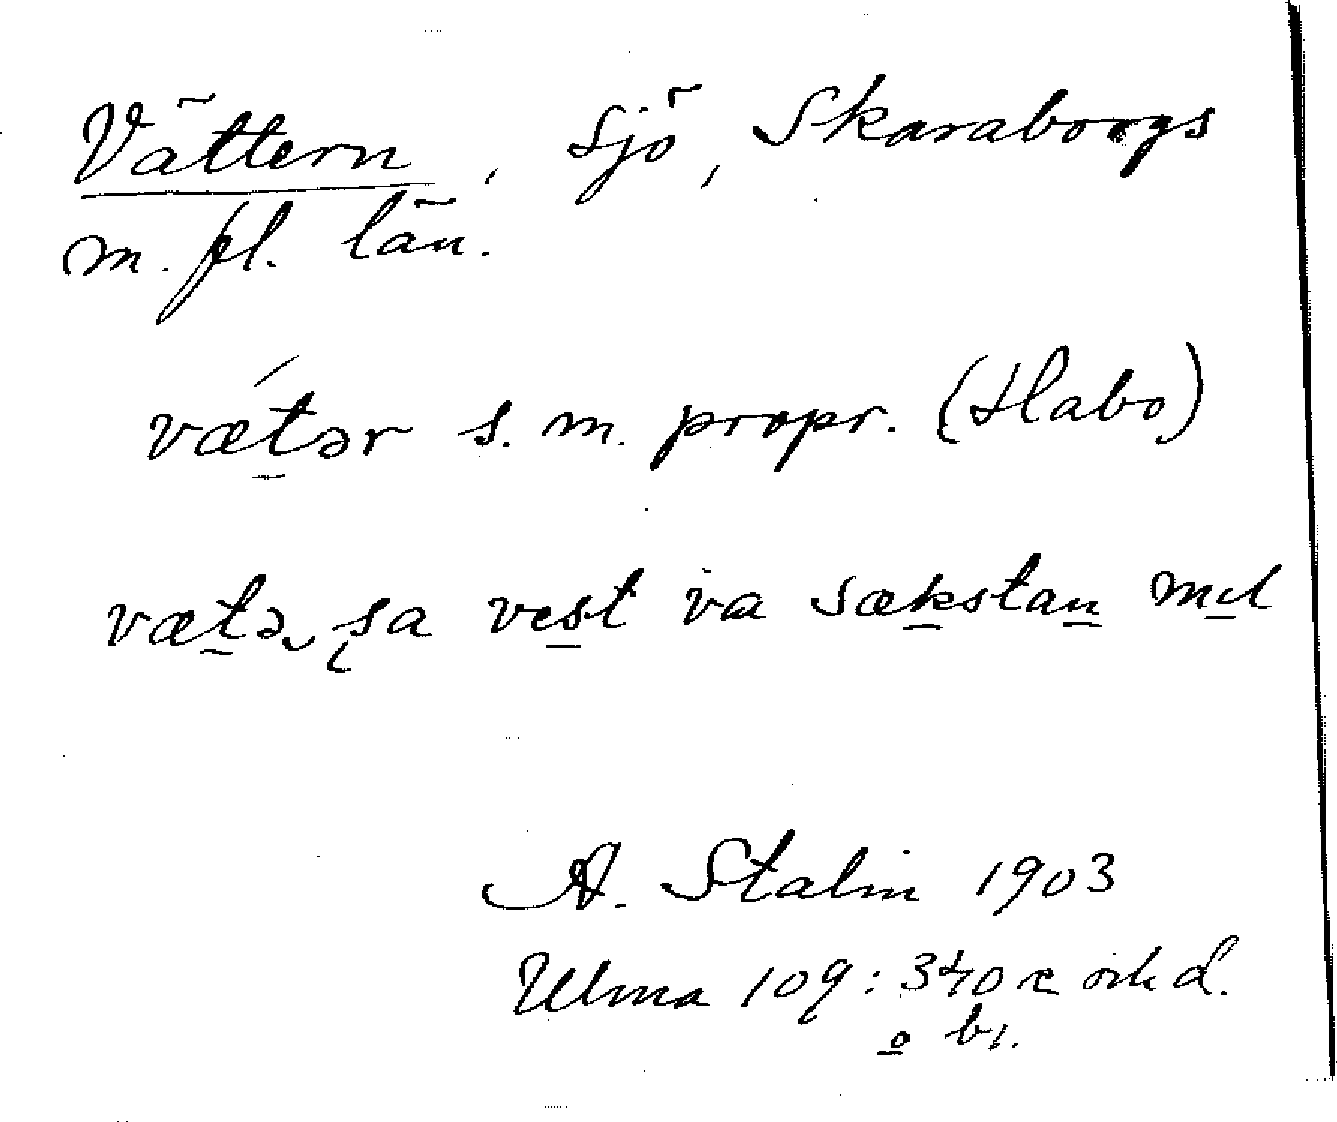 Vättern, sjö, Skaraborgs
m. fl. län.
vǽt̲ər s. m. propr. (Habo)
væt̲ə ʂa ves̲t va sæk̲stan̲ mɪ̲l
A. Stalin 1903
Ulma 109: 340 æ och d.
o̲ bl.